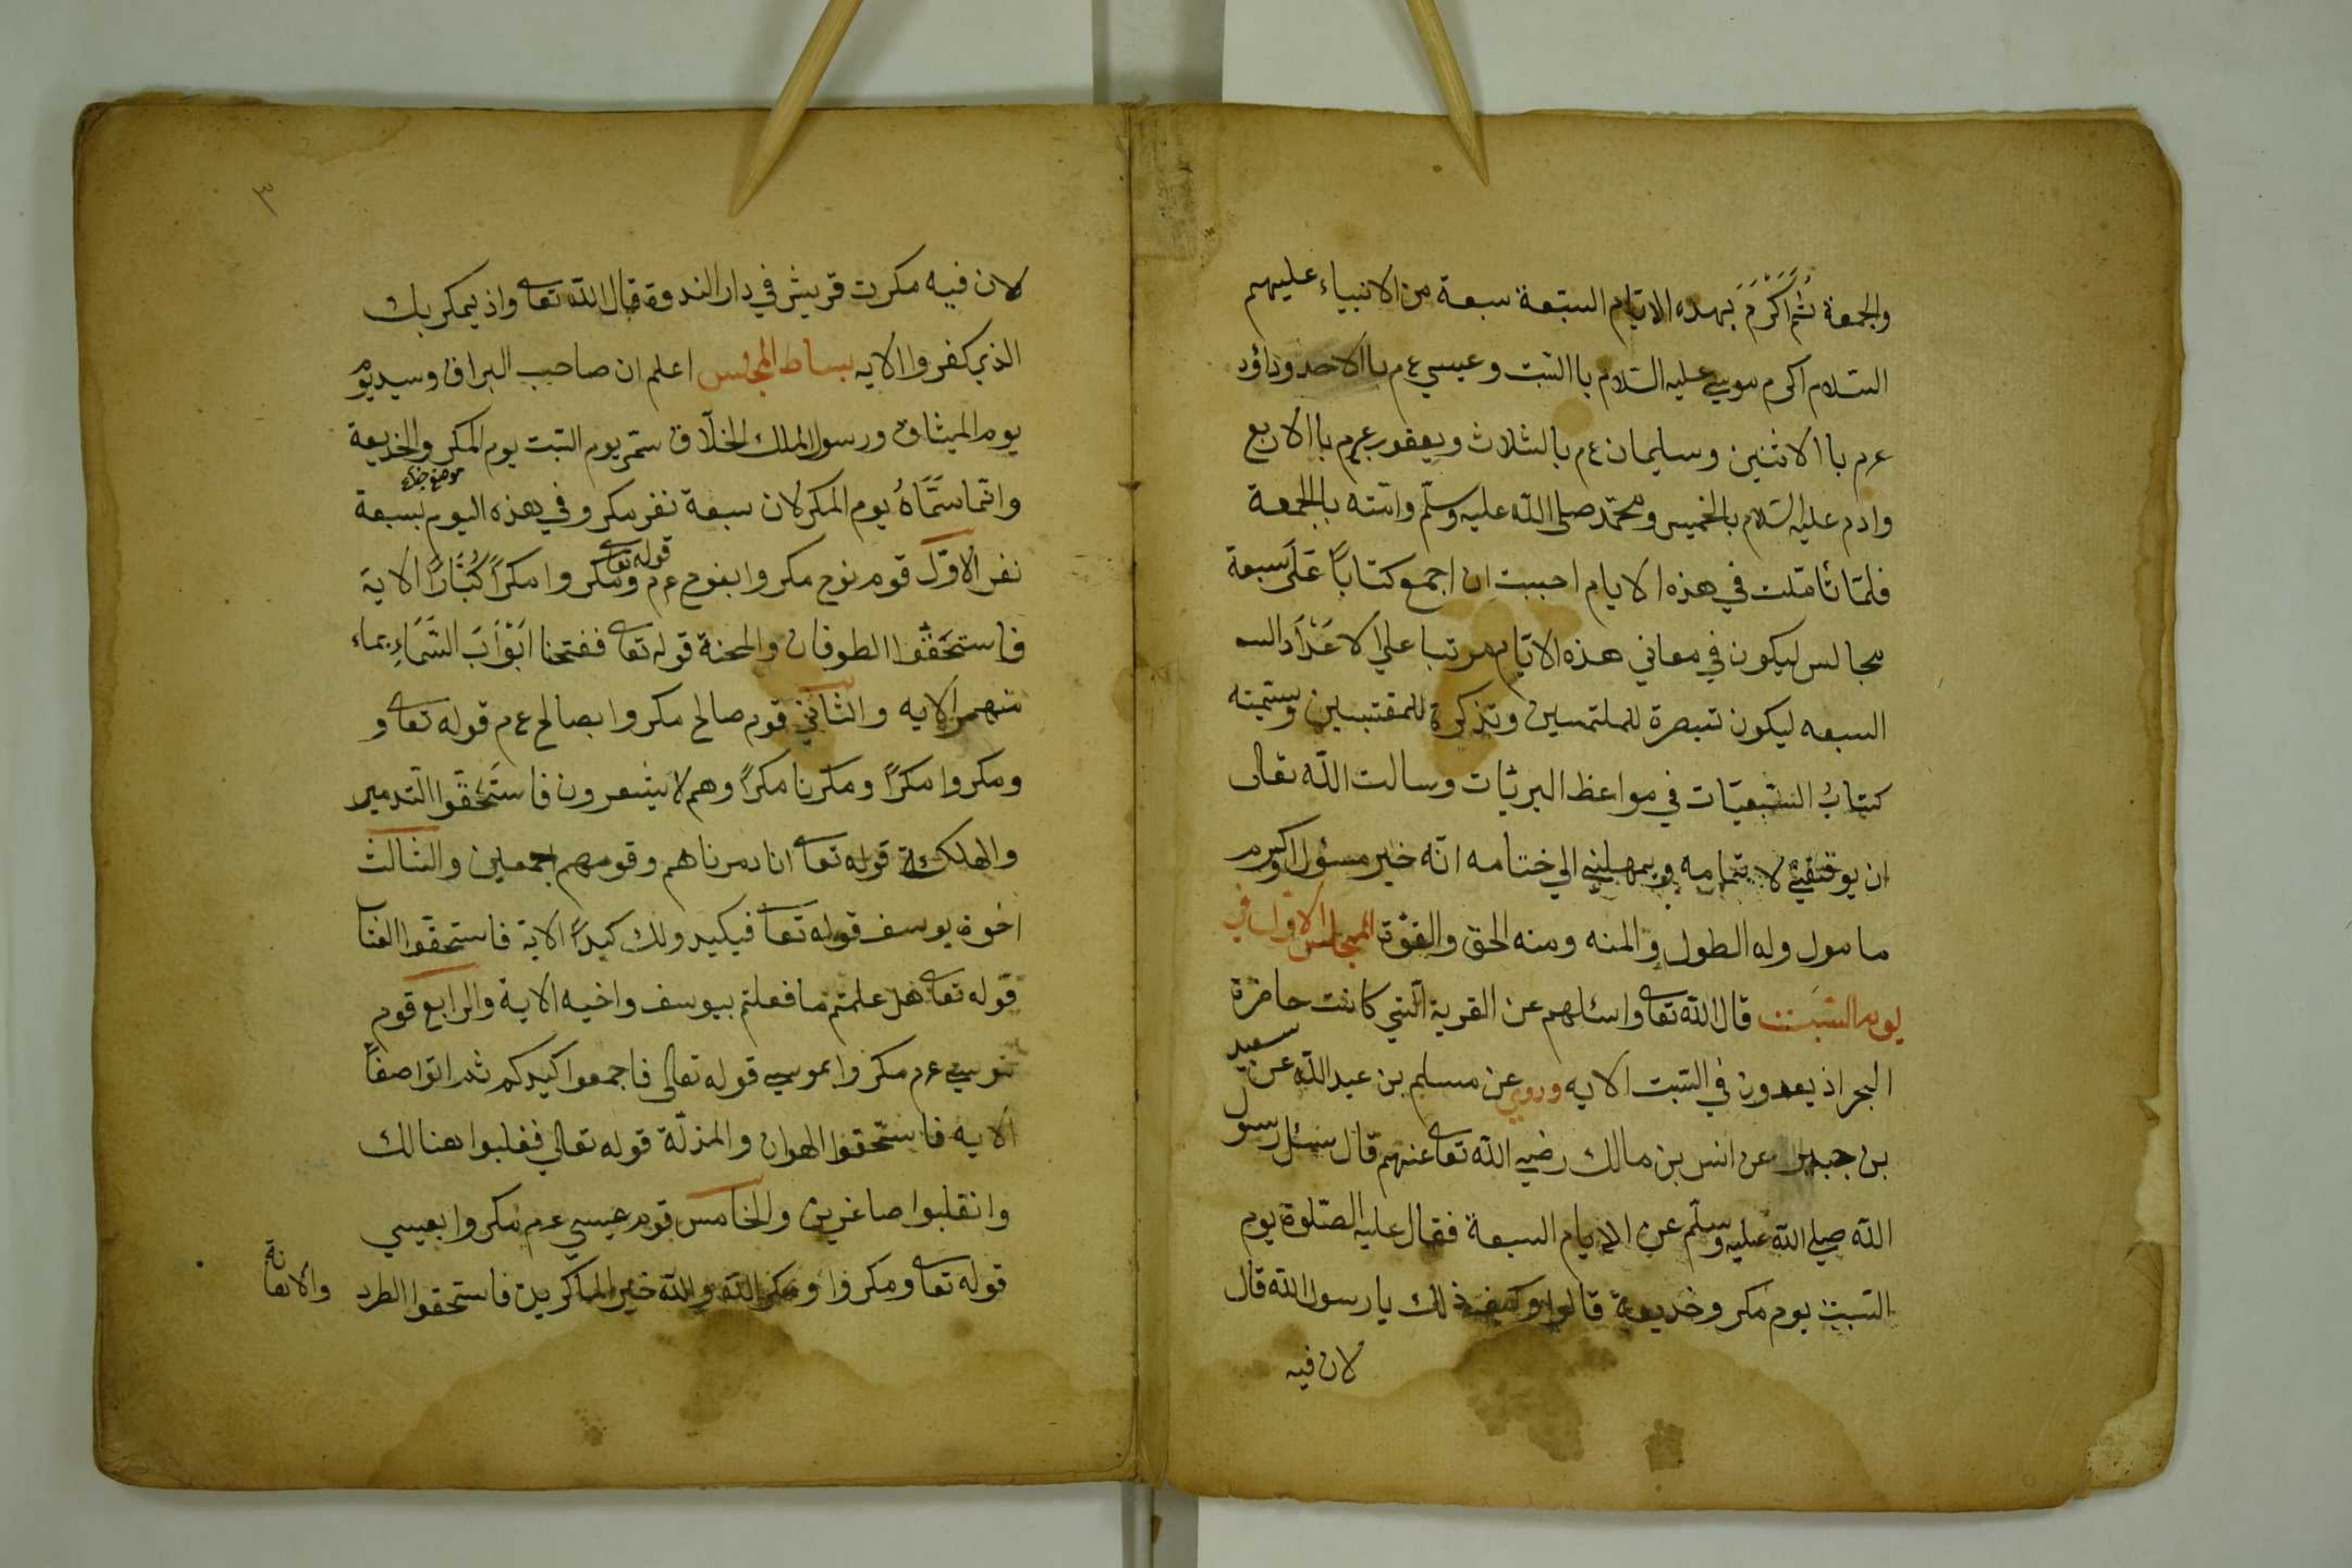 والجمعة ثُمَّ اَكْرَمَ بهذه الايّام السّبعة سبعة من الانبياء عليهم
السّلام اكرم موسي عليه السّلام باالسّبت وعيسي ع م باالاحد وداؤد
ع م باالاثنين وسليمان ع م بالثلاث ويعقوب ع م باالاربع
وادم عليه السّلام بالخميس ومحمّد صلى الله عليه وسلّم وامّته بالجمعة
فلمّا تأمّلت في هذه الايام احببت ان اجمع كتاباً عَلَى سبعة
مجالس ليكون في معاني هذه الايّام مرتبا علي الاعْدَاد السـ
السبعه ليكون تبصرة للملتمسين وتذكرة للمقتبسين وسمّيته
كتابُ السّبعيّات في مواعظ البريّات وسالت الله تعالى
ان يوفقني لاتمامه ويمهلني الي ختامه انّه خير مسؤل واكرم
مامول وله الطول والمنه ومنه الحق والقوّة المجلس الاوّل في
يوم السّبت قال الله تعا واسئلهم عن القرية الّتي كانت حاضرة
البحر اذ يعدون في السّبت الايه وروي عن مسلم بن عبد الله عن سعيد
بن جبير عن انس بن مالك رضي الله تعا عنهم قال سئل رسول
الله صلي الله عليه وسلّم عن الايام السبعة فقال عليه الصّلوة يوم
السّبت يوم مكر وخديعة قالوا وكيف ذلك يا رسول الله قال
لان فيه
٣
لان فيه مكرت قريش في دار الندوة قال الله تعا واذ يمكر بك
الذين كفروا الايه بساط المجلس اعلم ان صاحب البراق وسيد يوم
يوم الميثاق ورسول الملك الخلّاق سمّى يوم السّبت يوم المكر والخديعة
وانّما سَمَّاهُ يوم المكر لان سبعة نفر مكروا في هذه اليوم بسبعة
نفر الاوّل قوم نوح مكروا بنوح ع م قوله تعا ومكروا مكراً كُبَّاراً الاية
فاستحَقّوا الطوفان والمحنة قوله تعا ففتحنا اَبْوَابَ السَّمَاءِ بماء
منهمر الايه والثاني قوم صالح مكروا بصالح ع م قوله تعا و
ومكروا مكراً ومكرنا مكراً وهم لا يشعرون فاستَحَقّوا التّدمير
والهلكة قوله تعا انا دمرناهم وقومهم اجمعين والثالث
اخوة يوسف قوله تعا فيكيدو لك كيداً الاية فاستحقوا العتاب
قوله تعا هل علمتم ما فعلتم بيوسف واخيه الاية والرابع قوم
موسي ع م مكروا بموسي قوله تعالى فاجمعوا كيدكم ثم ائتوا صفاً
الايه فاستحقوا الهوان والمذلّة قوله تعالي فغلبوا هنالك
وانقلبوا صاغرين والخامس قوم عيسي ع م مكروا بعيسي
قوله تعا ومكروا ومكر الله والله خير الماكرين فاستحقوا الطرد
والاهانة